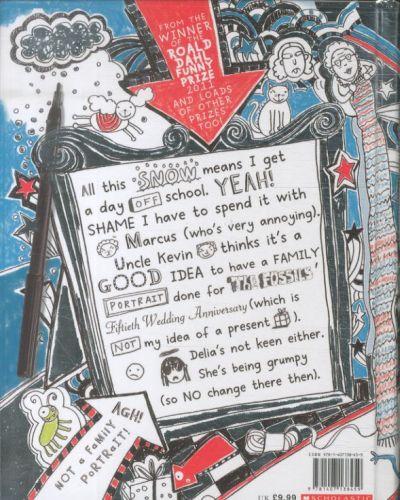 FROM THE
WINNER
OF THE
ROALD
DAHL
FUNNY
PRIZE
2011
AND LOADS
OF OTHER
PRIZES
TOO!
All this SNOW means I get
a day OFF school. YEAH!
SHAME I have to spend it with
Marcus (who's very annoying).
Uncle Kevin thinks it's a
GOOD IDEA to have a FAMILY
PORTRAIT done for THE FOSSILS'
Fiftieth Wedding Anniversary (which is
NOT my idea of a present).
Delia's not keen either.
She's being grumpy
(so NO change there then).
AGH!
NOT a FAMILY
PORTRAIT!
UK £9.99
SCHOLASTIC